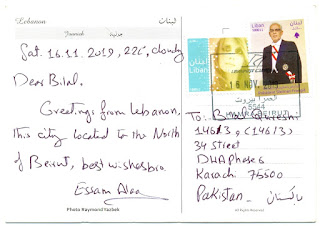 Lebanon
لبنان
Jounieh
جونيه
Sat. 16.11.2019, 22c, cloudy
Dear Bilal,
Greetings from Lebanon,
This city located to the North
of Beirut, best wishes bro.
Essam
Photo Raymond Yazbek
Liban
لبنان
Liban
لبنان
16 NOV 2019
5544
الحمرا بيروت
HAMRA BEIRUT
To: Bilal Qureshi
146/3, (146/3)
34 Street
DHA Phase 6
Karachi 75500
Pakistan پاکستان
All Rights Reserved